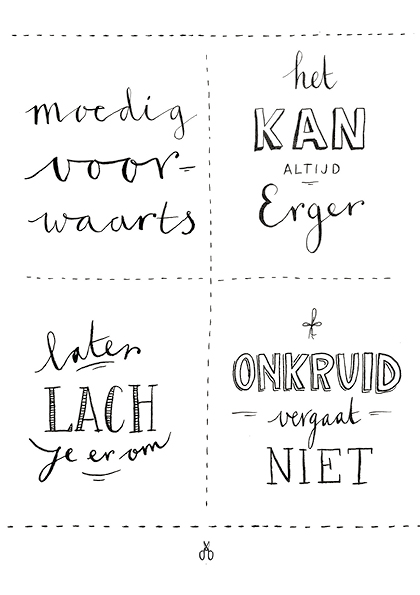 moedig
voor-
waarts
het
KAN
ALTIJD
Erger
later
LACH
Je er om
ONKRUID
vergaat
NIET